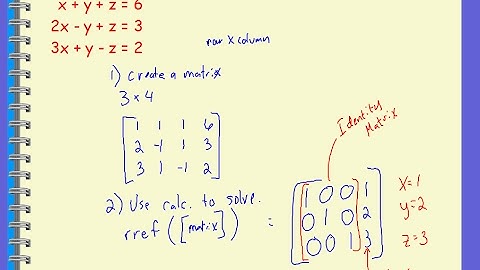 x + y + z = 6
2x - y + z = 3
3x + y - z = 2
row x column
1) Create a matrix
3 x 4
1 1 1 6
2 -1 1 3
3 1 -1 2
Identity
Matrix
2) Use calc. to solve.
rref ([matrix]) =
1 0 0 1
0 1 0 2
0 0 1 3
x=1
y=2
z=3